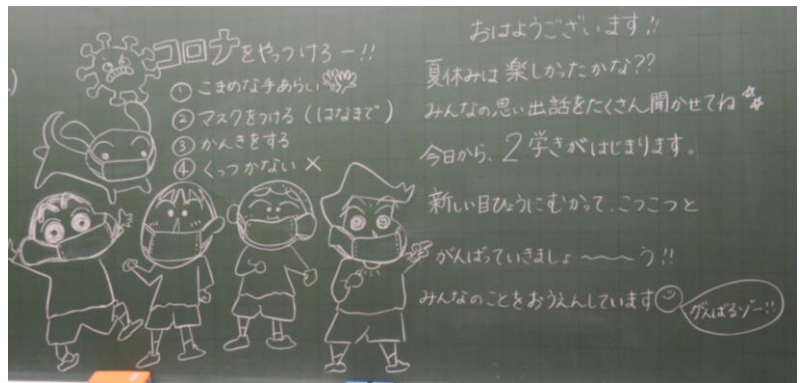 コロナをやっつけろー!!
① こまめな手あらい
② マスクをつける(はなまで)
③ かんきをする
④ くっつかない ×
おはようございます!!
夏休みは楽しかったかな??
みんなの思い出話をたくさん聞かせてね
今日から、2学きがはじまります。
新しい目ひょうにむかって、こつこつと
がんばっていきましょ〜〜〜う!!
みんなのことをおうえんしています
がんばるゾー!!